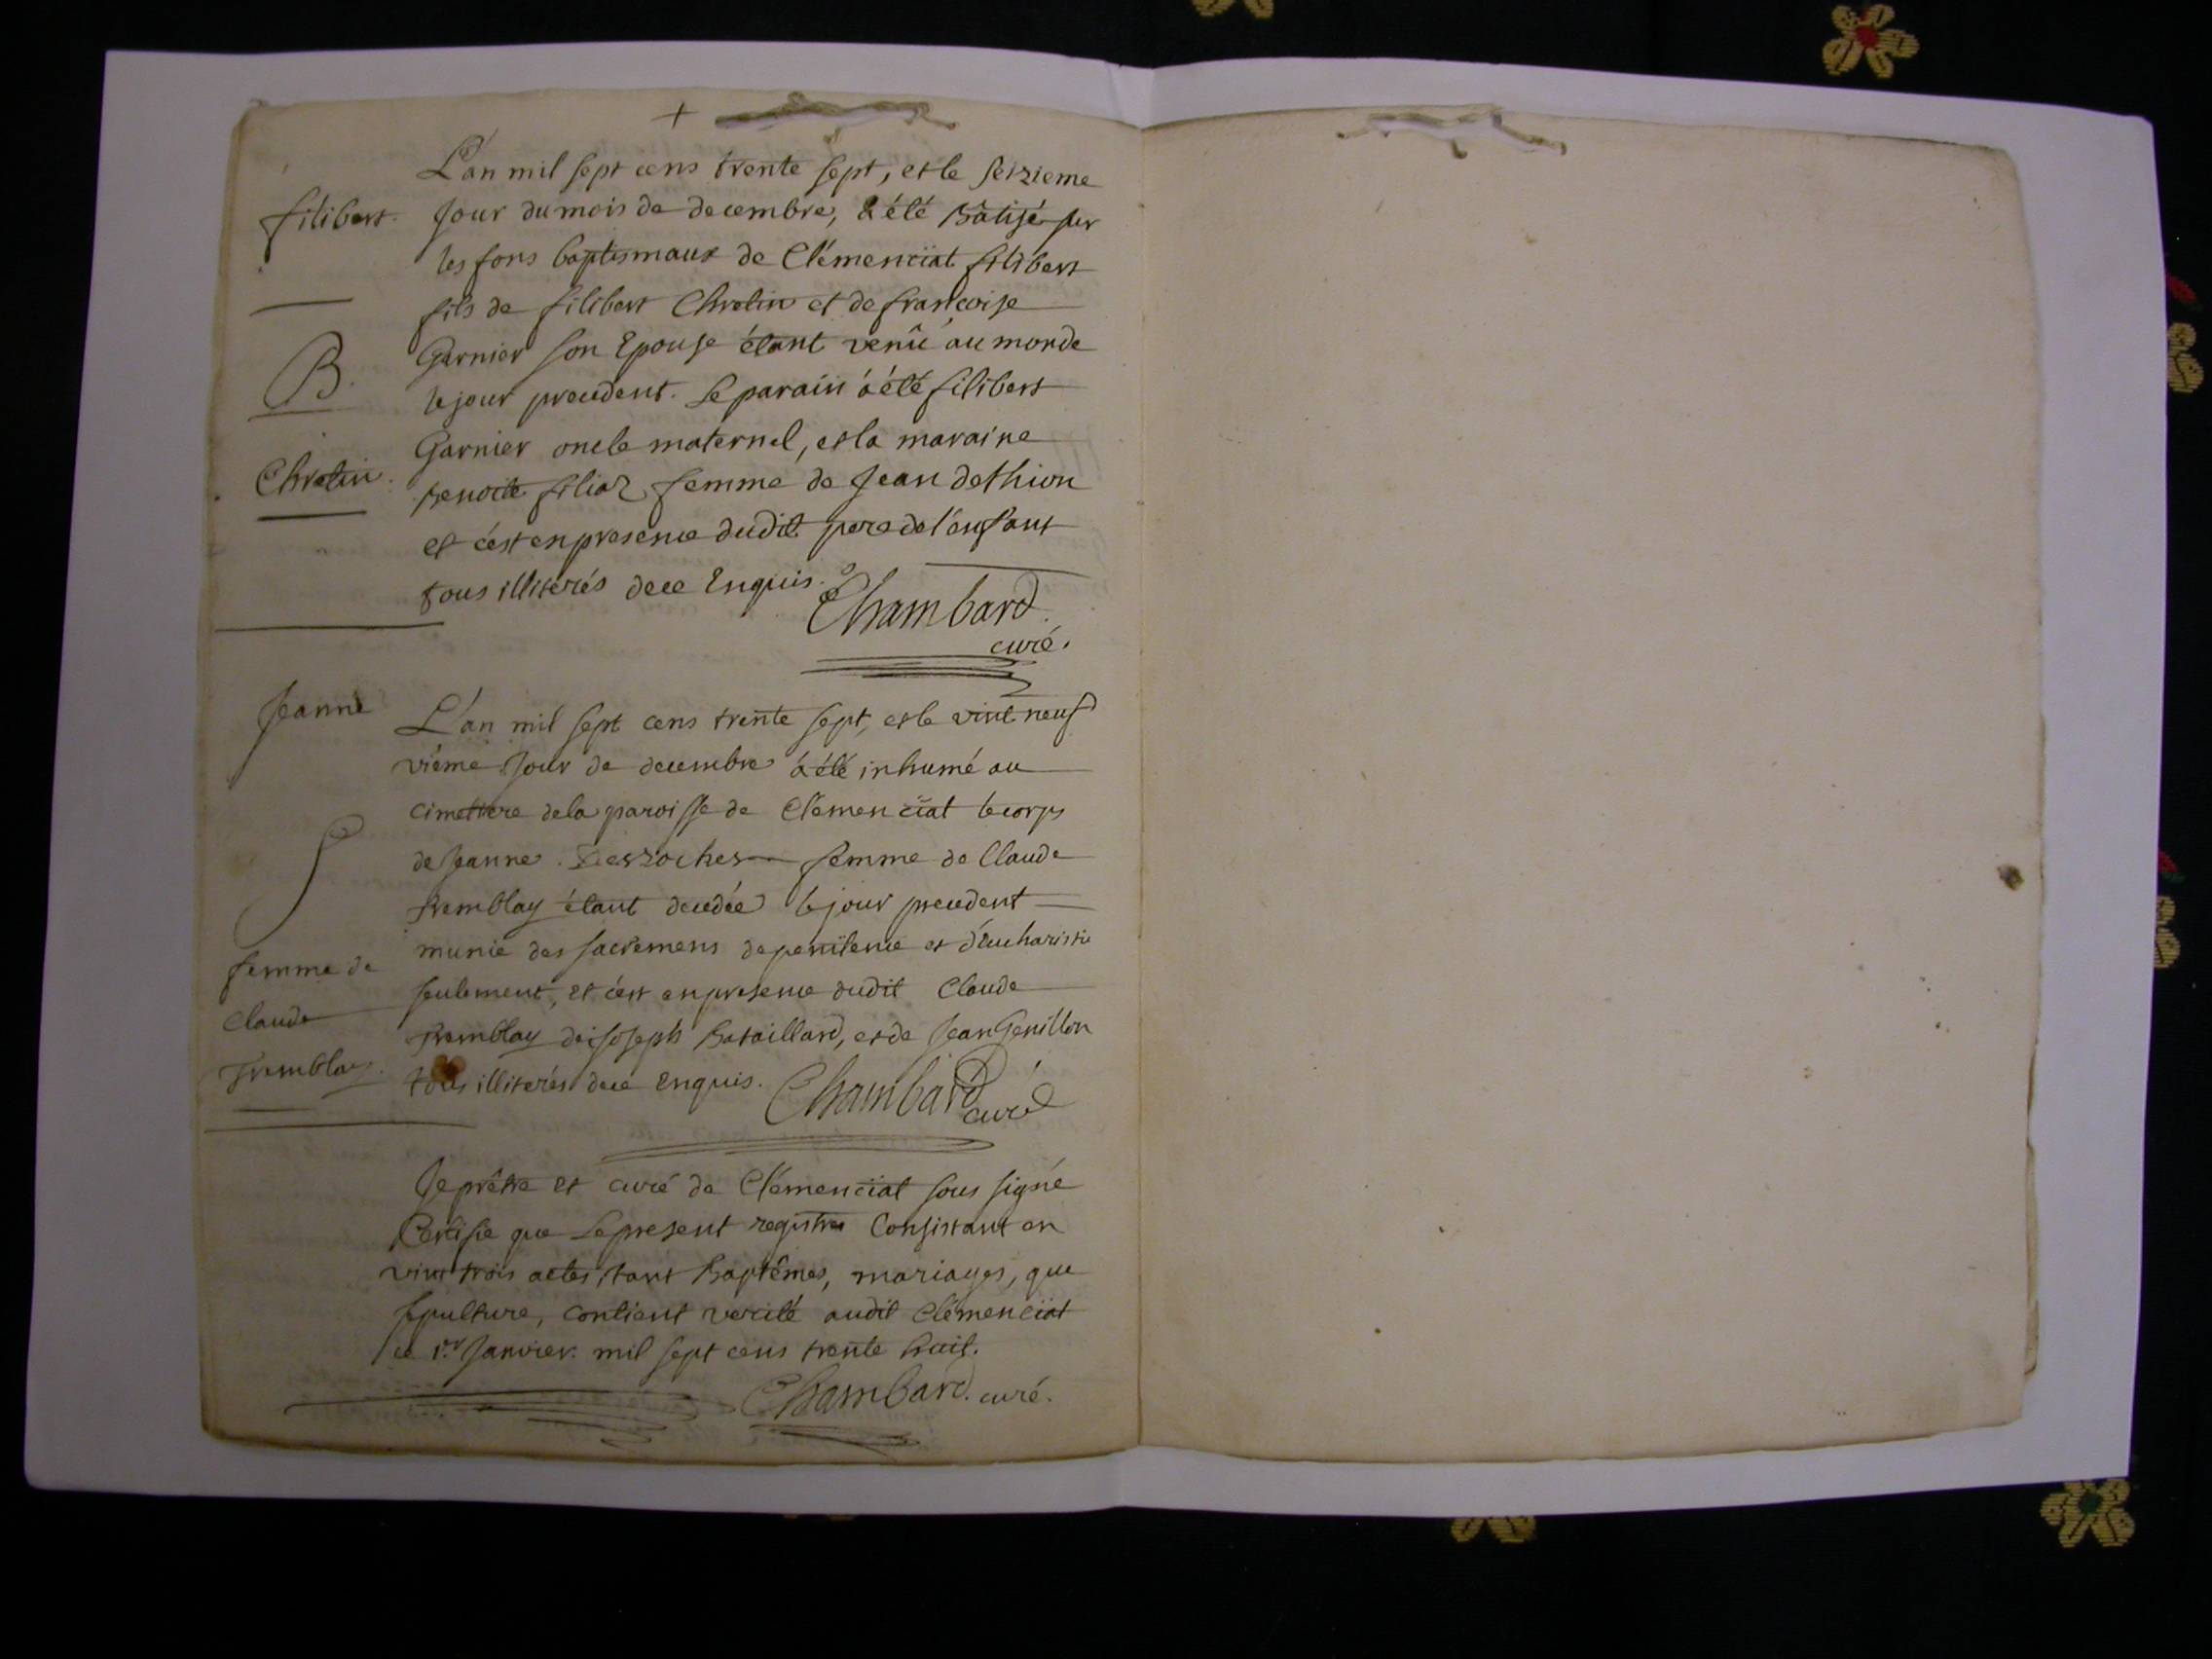 +
L'an mil sept cens trente sept, et le seizieme
filibert. Jour du mois de decembre, à été Bâtisé sur
les fons baptismaux de Clémenciat filibert
fils de filibert Chretin et de francoise
Garnier son Epouse étant venû au monde
B.
le jour precedent. Le parain à été filibert
Garnier oncle maternel, et la maraine
Chretin.
Benoite filiaz femme de Jean dethion
et c'est en presence dudit pere de l'enfant
tous illiterés de ce Enquis.
Chambard
curé.
Jeanne
L'an mil sept cens trente sept, et le vint neuf
viéme Jour de decembre à été inhumé au
cimettiere de la paroisse de Clémenciat le corps
S
de Jeanne Desroches femme de Claude
Tremblay étant decedée le jour precedent
munie des sacremens de penitence et d'Eucharistie
femme de
seulement, et c'est en presence dudit Claude
Claude
Tremblay de Joseph Bataillard, et de Jean Genillon
Tremblay.
tous illiterés de ce Enquis. Chambard
curé
Je prêtre et curé de Clémenciat sous signé
Certifie que le present registre Consistant en
vint trois actes, tant Baptêmes, mariages, que
sepulture, contient verité audit Clémenciat
ce 1.er Janvier mil sept cens trente huit.
Chambard. curé.